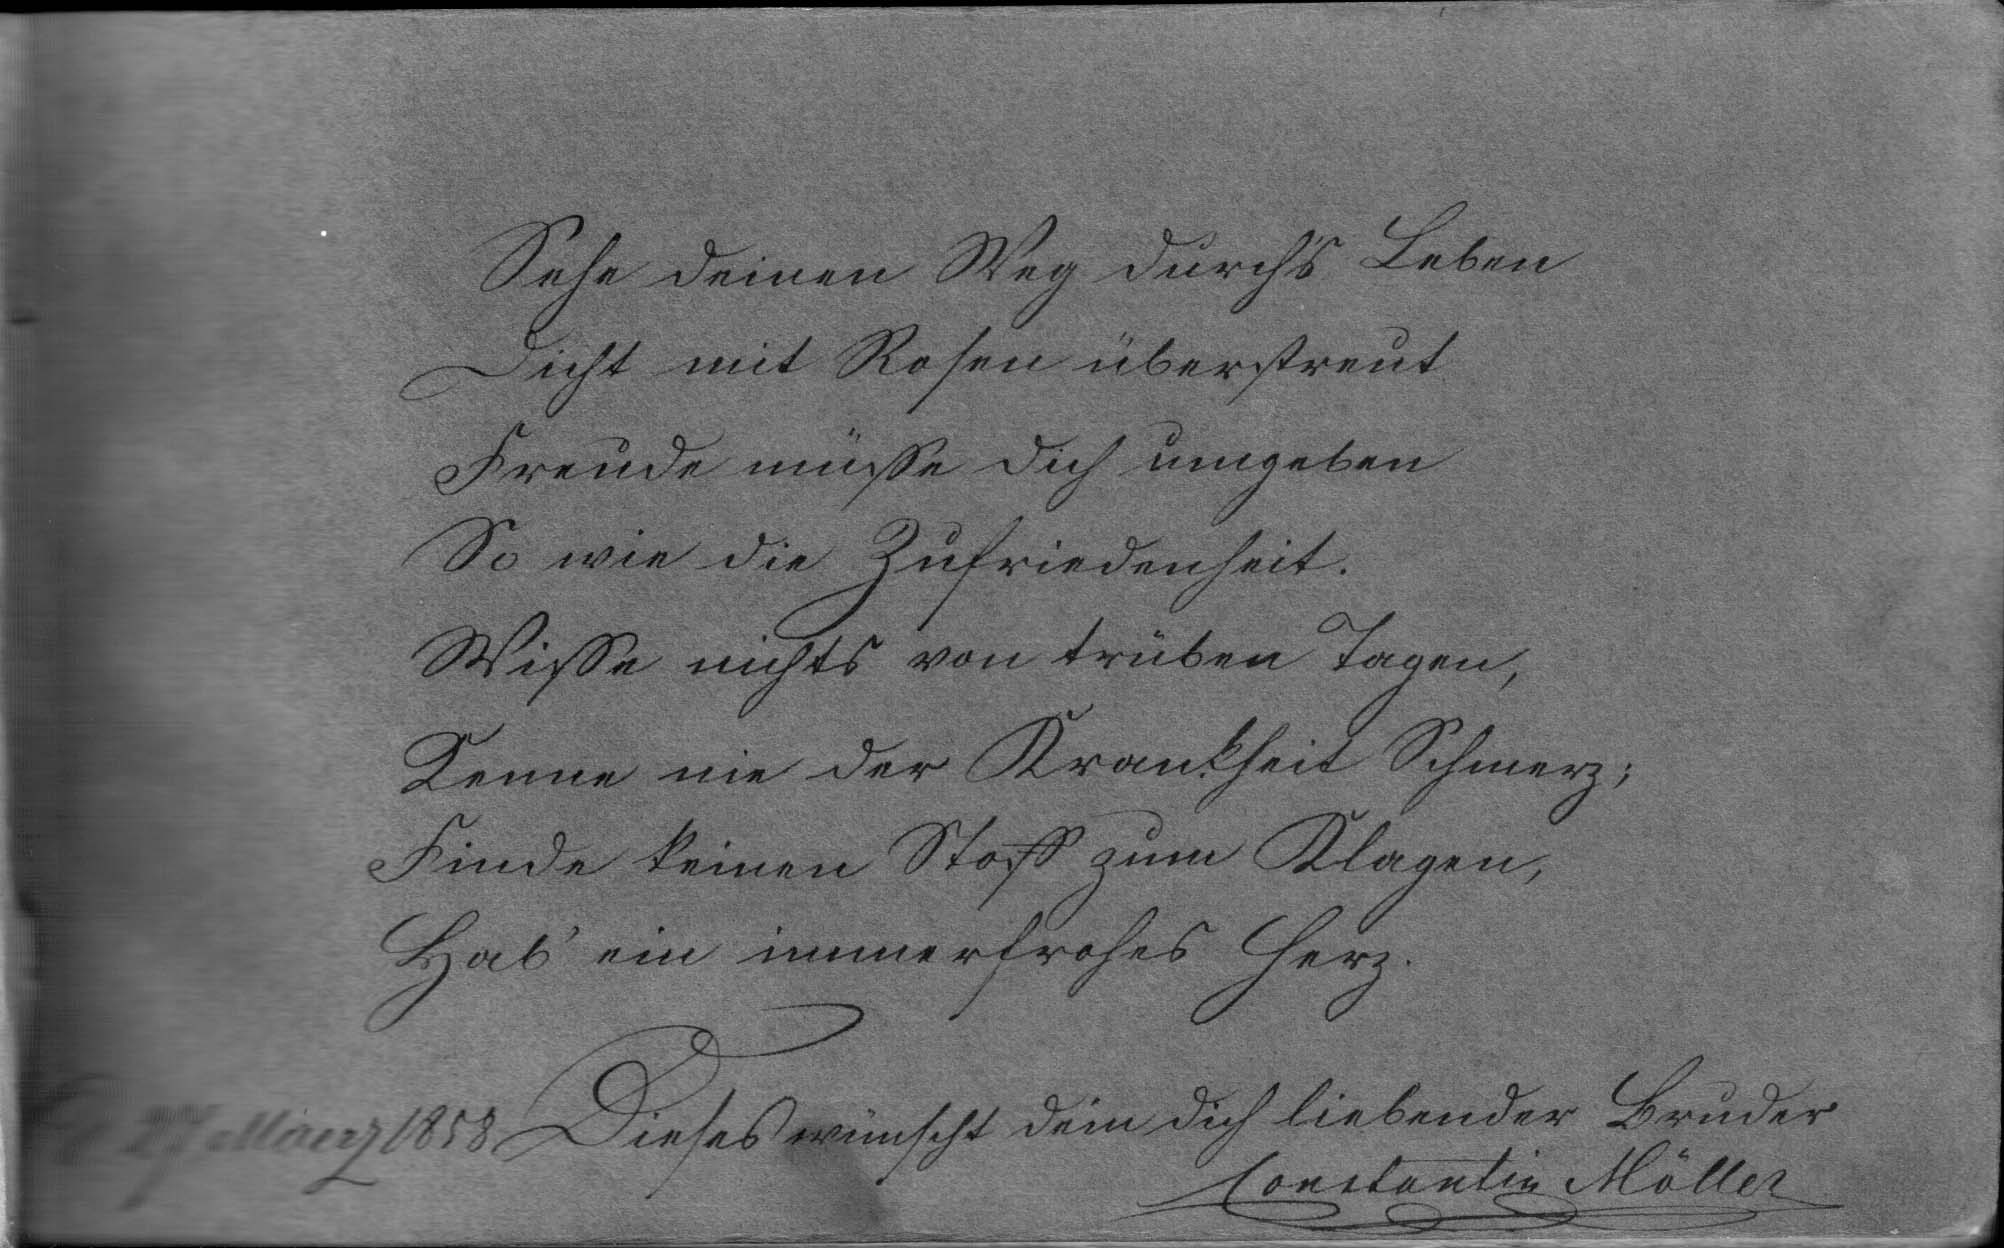 Sehe deinen Weg durch's Leben
Dicht mit Rosen überstreut
Freude müsse dich umgeben
So wie die Zufriedenheit.
Wisse nichts von trüben Tagen,
Kenne nie der Krankheit Schmerz;
Finde keinen Stoff zum Klagen,
Hab' ein immerfrohes Herz.
27 Maerz 1858 Dieses wünscht dein dich liebender Bruder
Constantin Möller